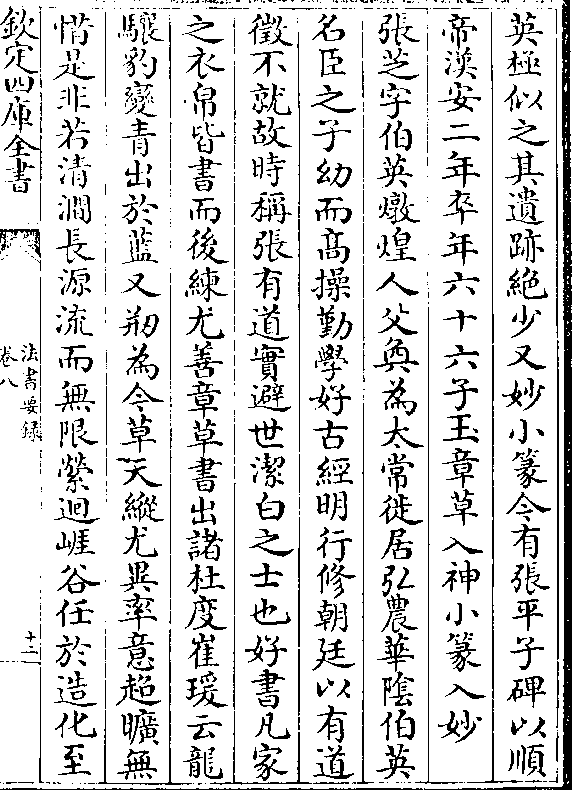 英極似之其遺跡絶少又妙小篆今有張平子碑以順
帝漢安二年卒年六十六子玉章草入神小篆入妙
張芝字伯英燉煌人父奐為太常徙居弘農華陰伯英
名臣之子幼而髙操勤學好古經明行修朝廷以有道
徵不就故時稱張有道實避世潔白之士也好書凡家
之衣帛皆書而後練尤善章草書出諸杜度崔瑗云龍
驤豹變青出於藍又剏為今草天縱尤異率意超曠無
惜是非若清澗長源流而無限縈迴崕谷任於造化至
欽定四庫全書
法書要録
卷八
十二